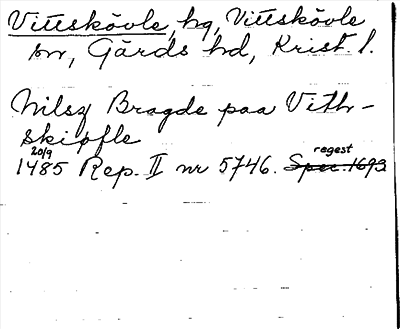 Vittskövle, hg, Vittskövle
sn, Gärds hd, Krist. l.
Nilsz Bragde paa Vith-
skipfle
20/9
1485 Rep. II nr 5746. Spec. 1693
regest